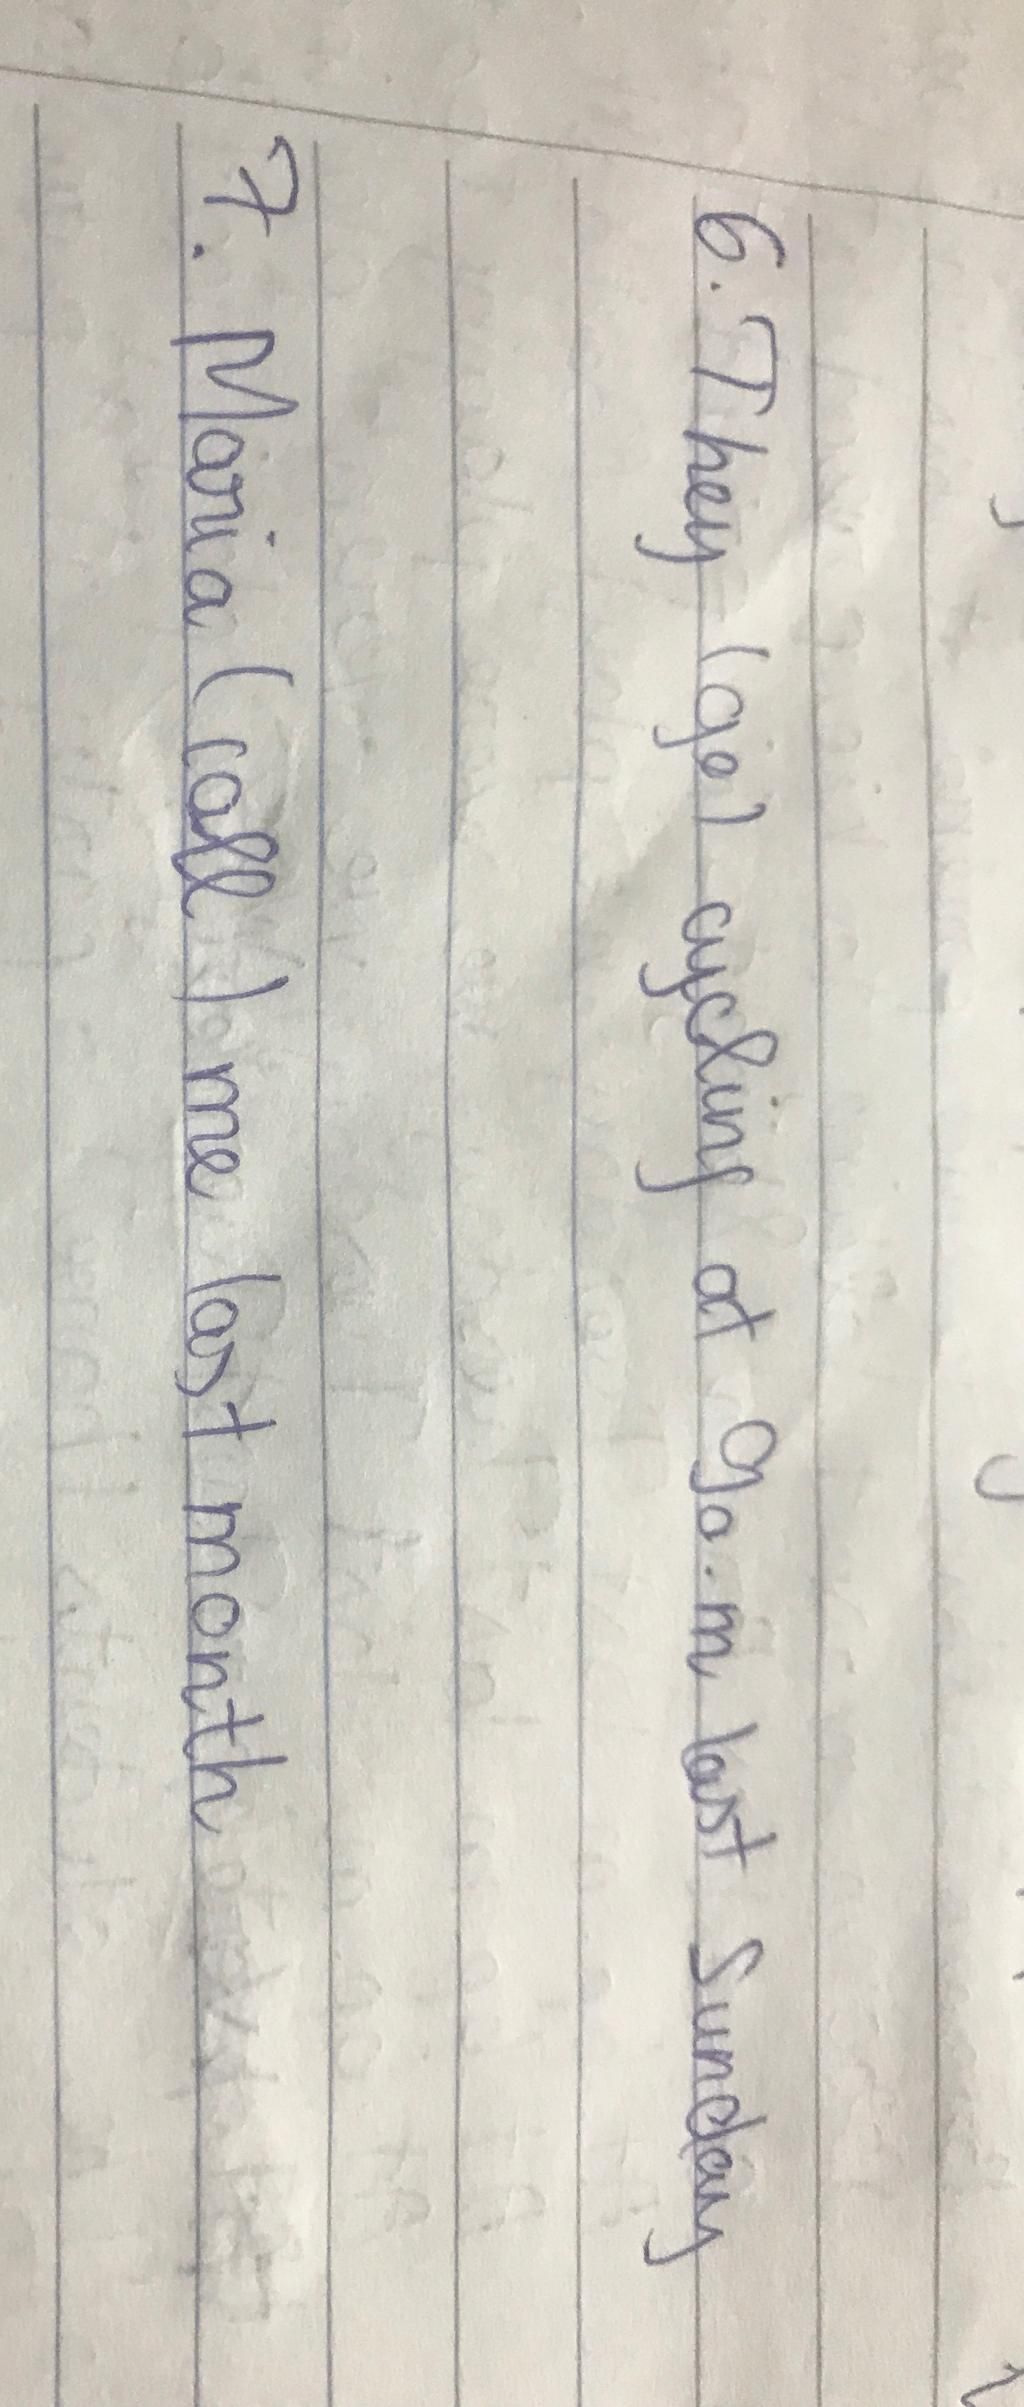 6. They (go) cycling at 9a.m last Sunday
7. Maria (call) me last month